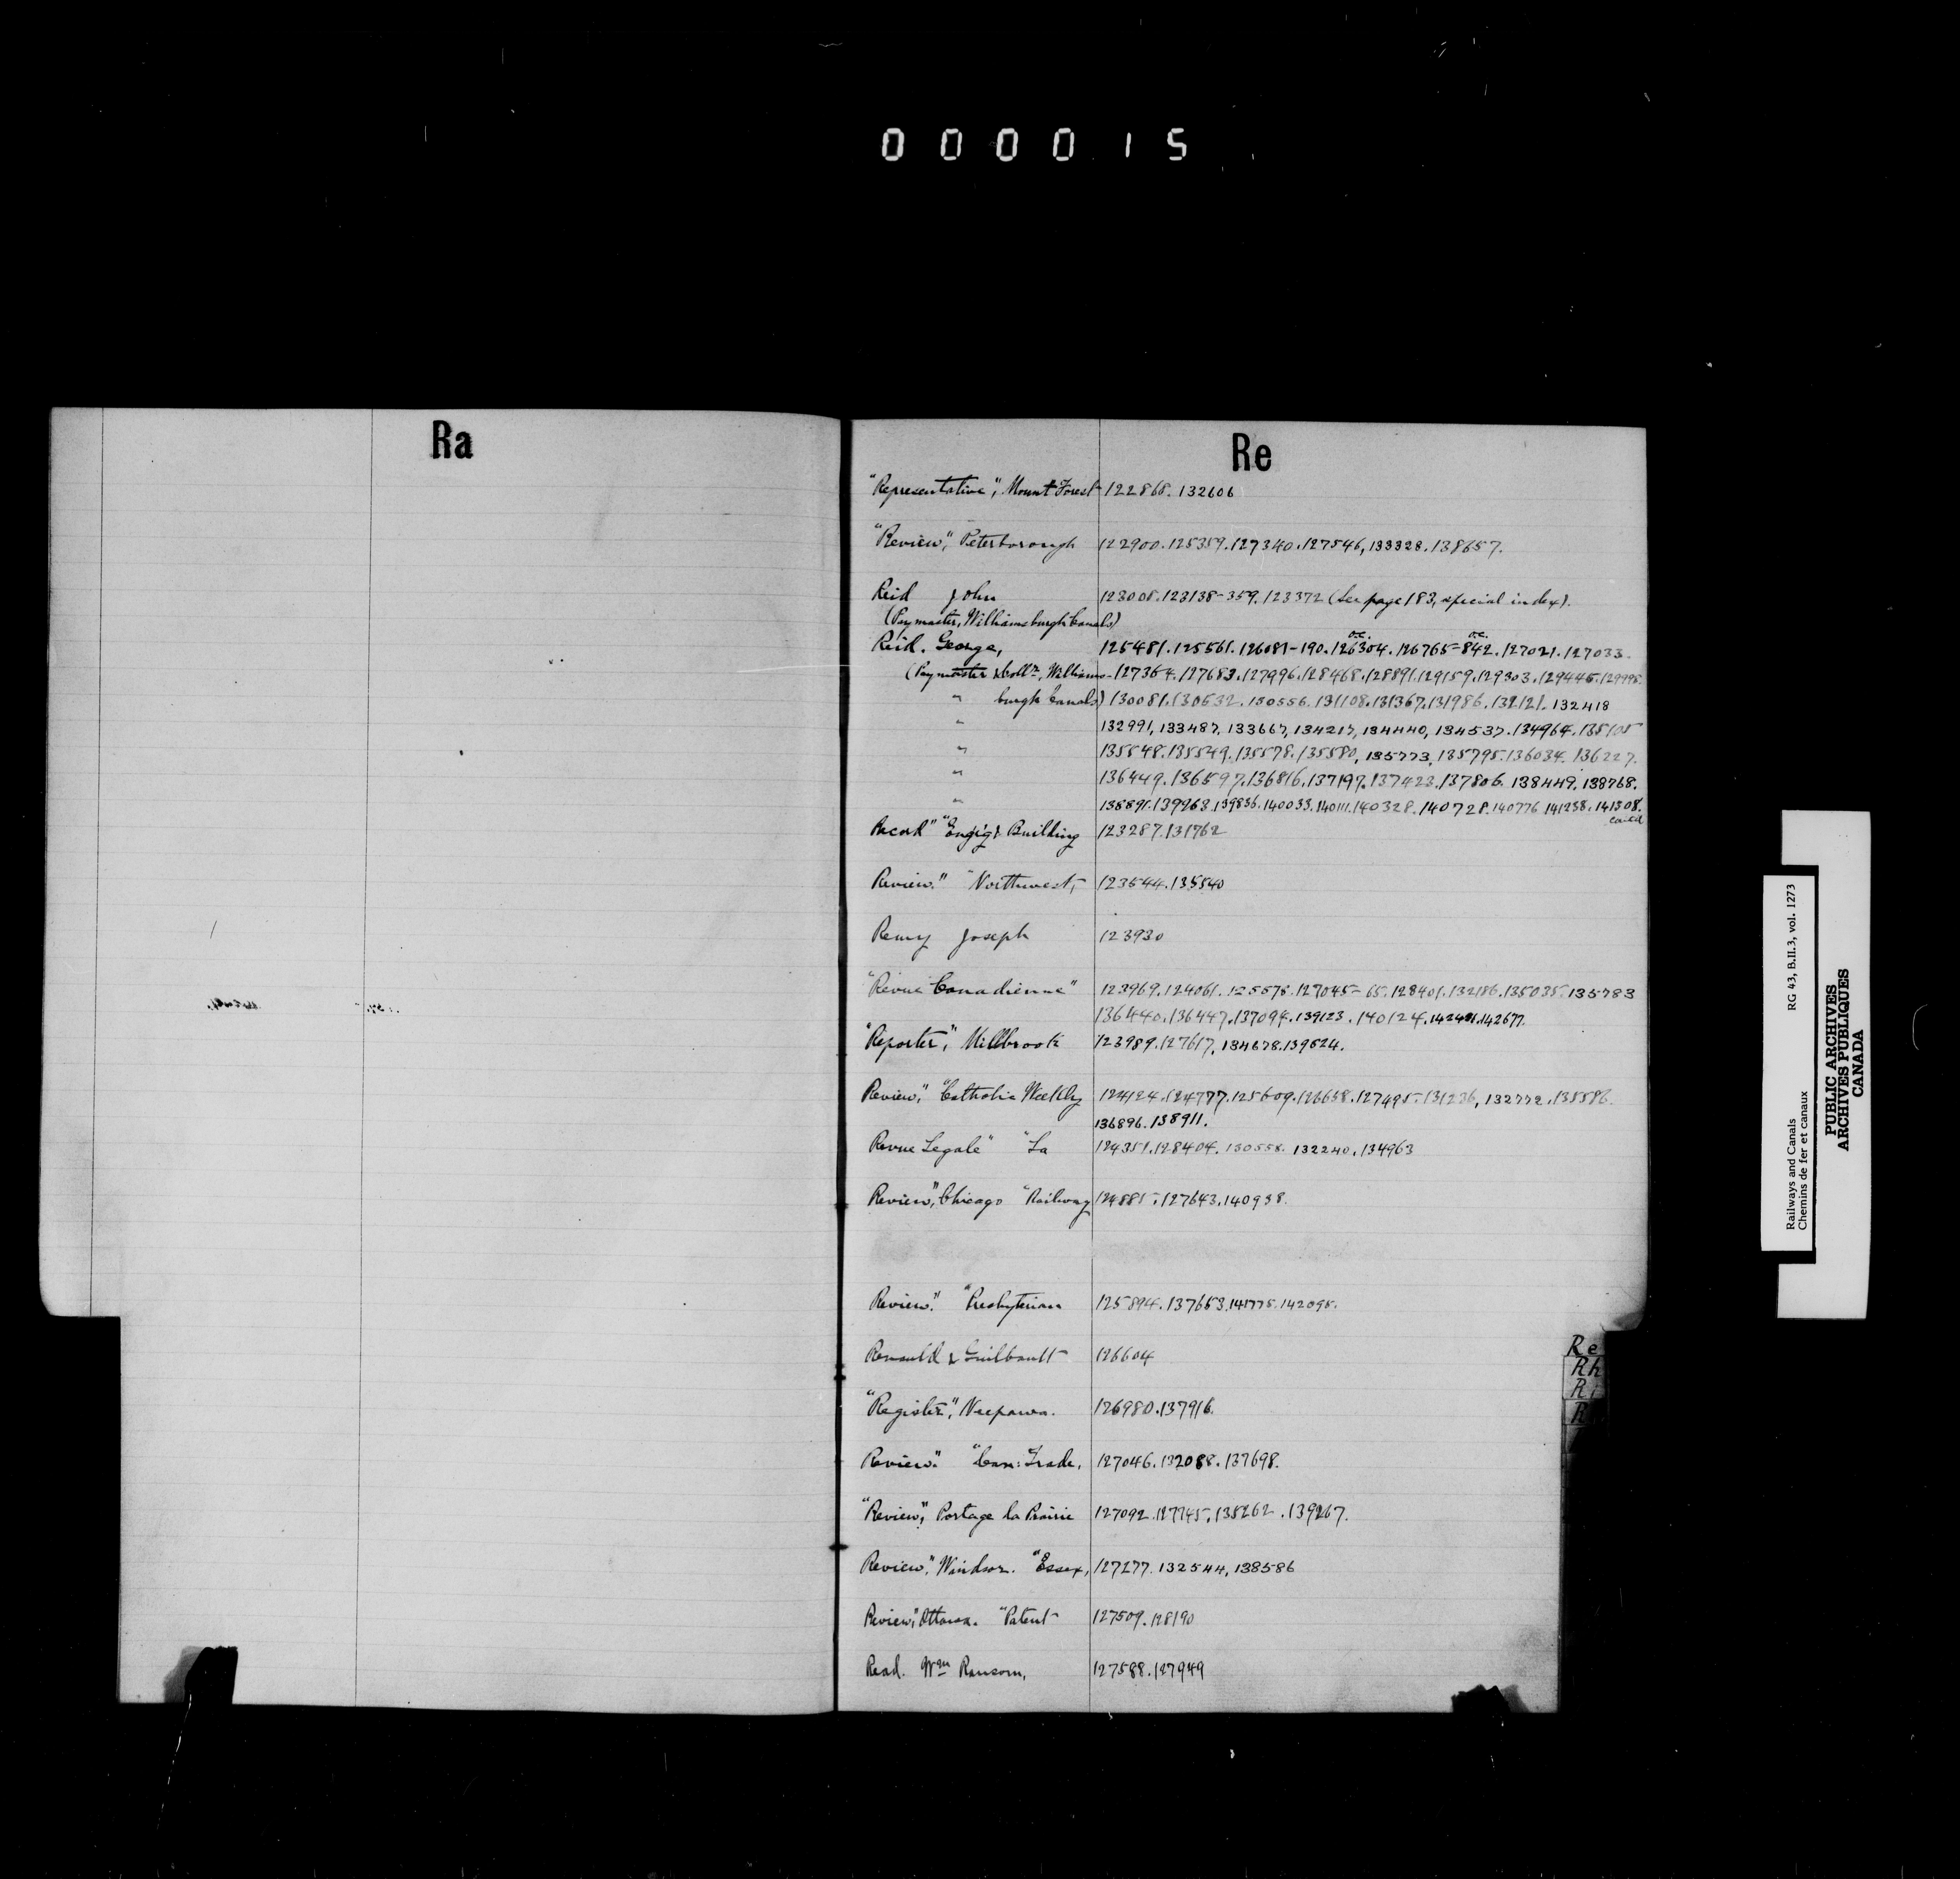 000015
Ra
Re
"Representative", Mount Forest 122868. 132606
"Review", Peterborough 122900. 125359. 127340. 127546, 133328. 138657.
Reid John 123008. 123138-359. 123372 (See page 183, special index).
(Paymaster, Williamsburgh Canals)
o.c. o.c.
Reid. George, 125481. 125561. 126081-190. 126304. 126765-842. 127021. 127033.
(Paymaster & Collr, Williams- 127364. 127683. 127996. 128468. 128891. 129159. 129303. 129445. 129998.
" burgh Canals) 130081. 130532. 130556. 131108. 131367. 131986. 132121. 132418
" 132991, 133487, 133667, 134217, 134440, 134537. 134964. 135105
" 135548. 135549. 135578. 135580, 135773, 135795. 136034. 136227.
" 136449. 136597. 136816. 137197. 137423. 137806. 138449. 138768.
" 138891. 139263. 139836. 140033. 140111. 140328. 140728. 140776 141238. 141308.
cont'd
Record" "Engi'g & Building 123287. 131762
Review." "Northwest, 123544. 135540
Remy Joseph 123930
"Revue Canadienne" 123969. 124061. 125578. 127045-65. 128401. 132186. 135035. 135783
136440. 136447. 137094. 139123. 140124. 142421. 142677.
"Reporter", Millbrook 123989. 127617, 134678. 139524.
Review," "Catholic Weekly 124124. 124777. 125609. 126638. 127495. 131236, 132772. 135586.
136896. 138911.
Revue Legale" "La 124351. 128404. 130558. 132240. 134963
Review", Chicago "Railway 124885. 127643. 140938.
Review." "Presbyterian 125894. 137653. 141775. 142095.
Renauld & Guilbault 126604
"Register", Neepawa. 126980. 137916.
Review." "Can: Trade, 127046. 132088. 137698.
"Review", Portage la Prairie 127092. 127745. 135262. 139267.
Review", Windsor. "Essex, 127277. 132544, 138586
Review", Ottawa. "Patent 127509. 128190
Read. Wm Ransom, 127588. 127949
Re
Rh
Ri
R
Railways and Canals RG 43, B.II.3, vol. 1273
Chemins de fer et canaux
PUBLIC ARCHIVES
ARCHIVES PUBLIQUES
CANADA